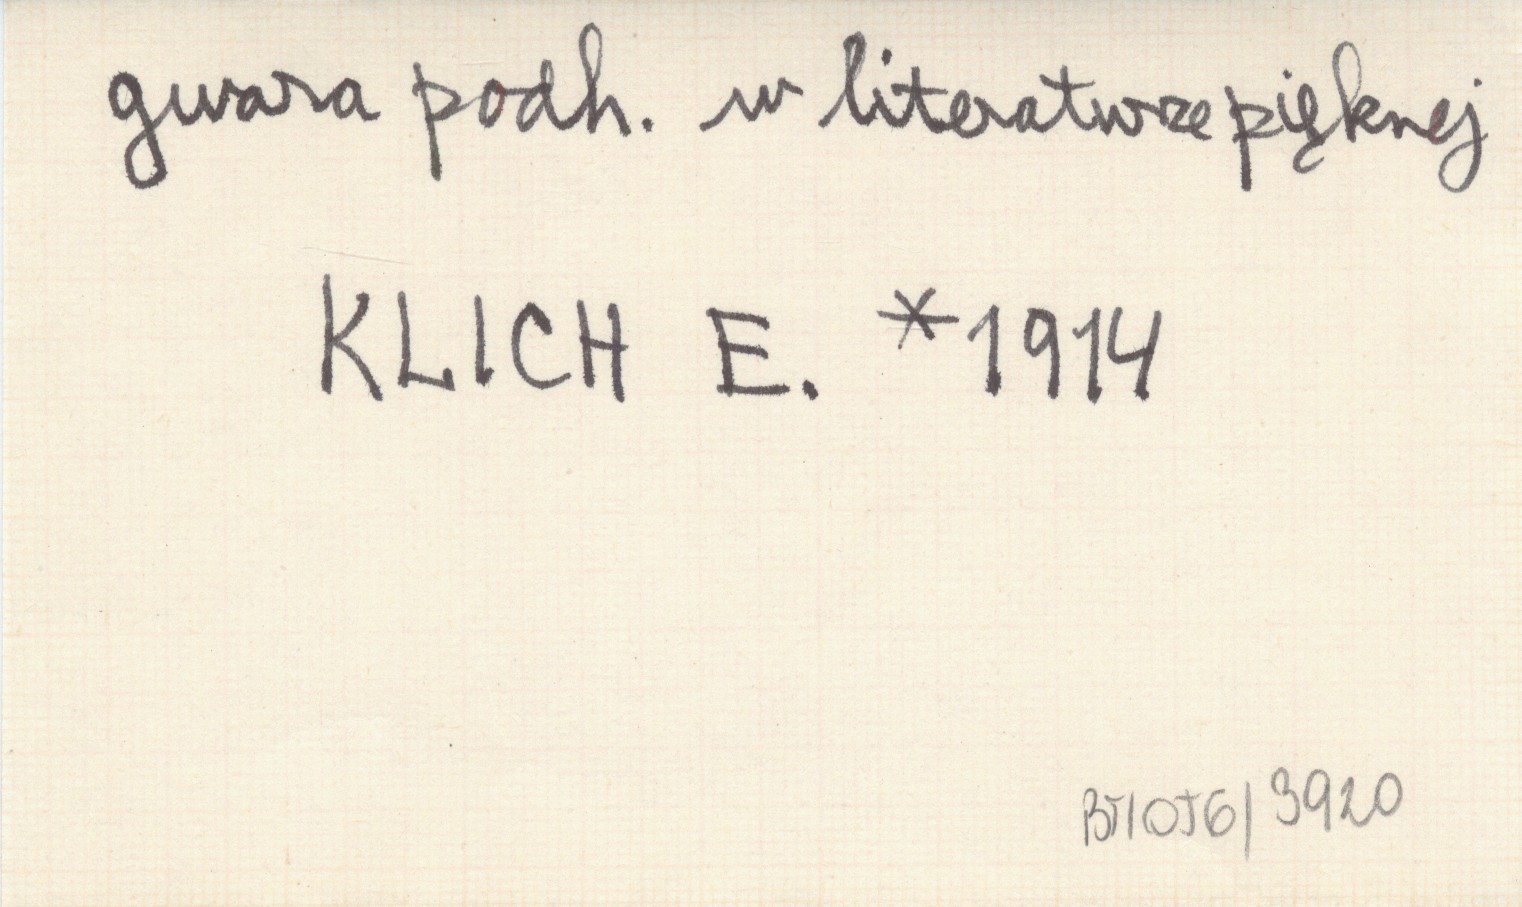 gwara podh. w literaturze pięknej
KLICH E. *1914
BJ/OJG/3920